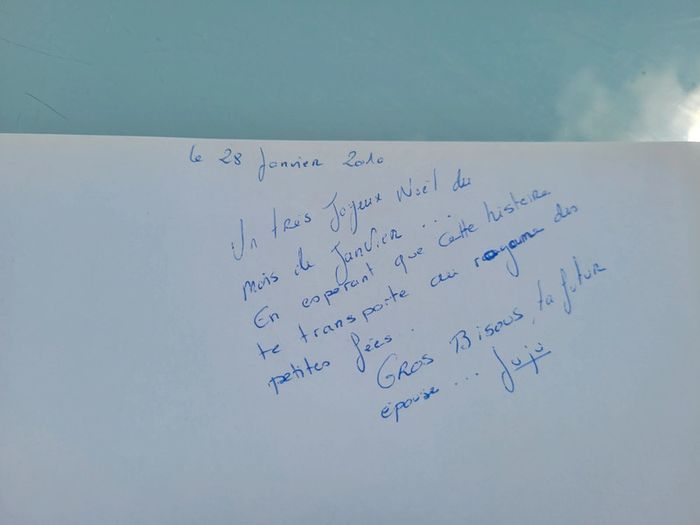 le 28 Janvier 2010
Un très Joyeux Noël du
mois de Janvier...
En espérant que cette histoire
te transporte au royaume des
petites fées.
Gros Bisous, ta futur
épouse... Juju